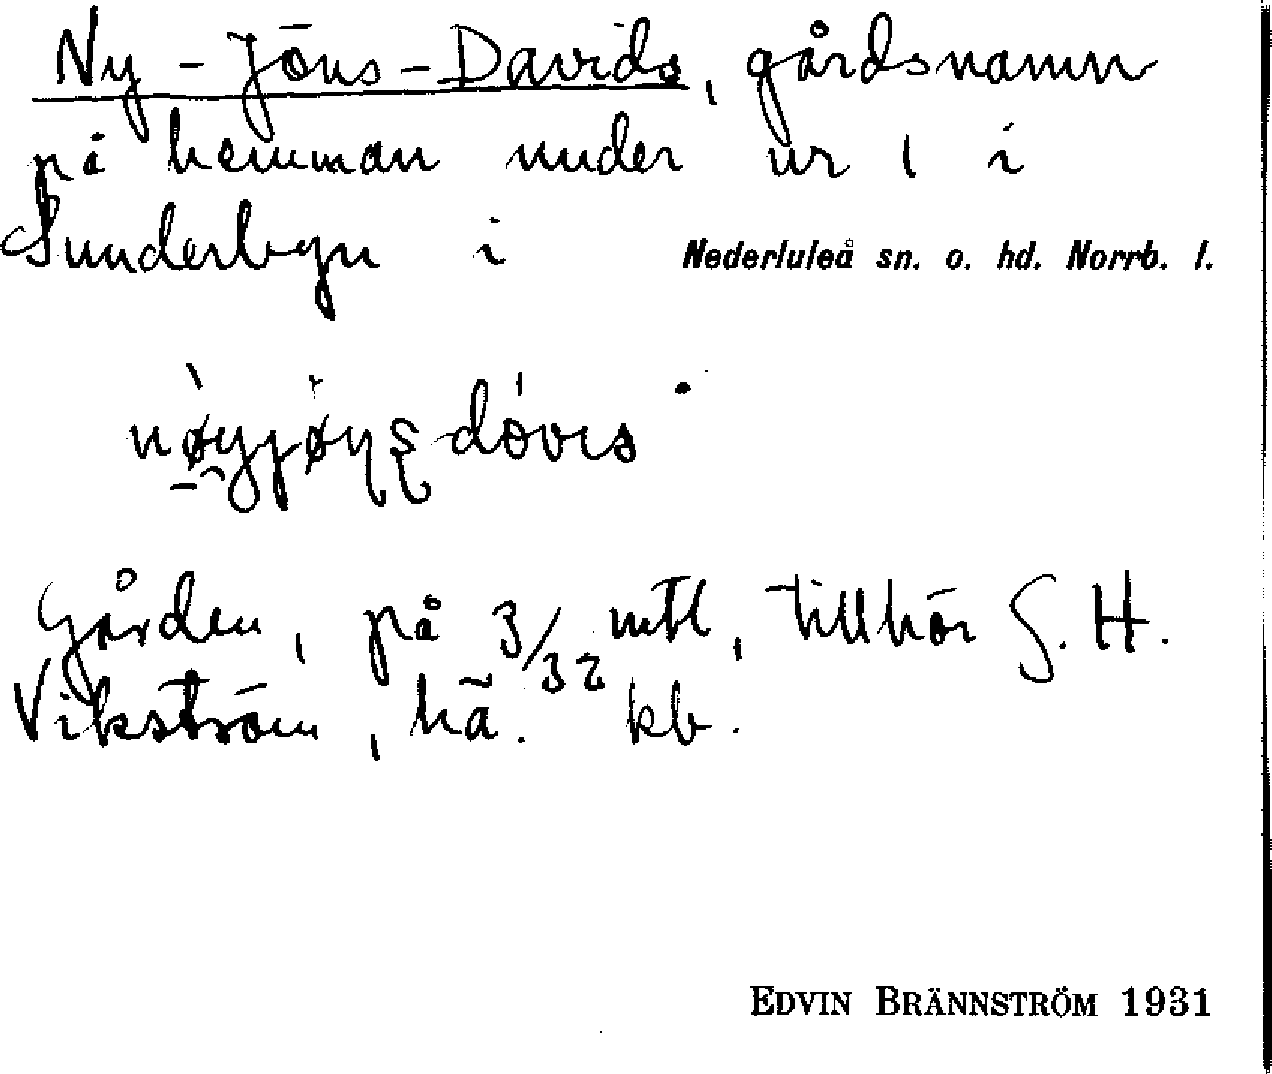 Ny-Jöns-Davids, gårdsnamn
på hemman under nr 1 i
Sunderbyn i Nederluleå sn. o. hd. Norrb. l.
Gården, på 3/32 mtl, tillhör G. H.
Vikström, hä. kb.
EDVIN BRÄNNSTRÖM 1931